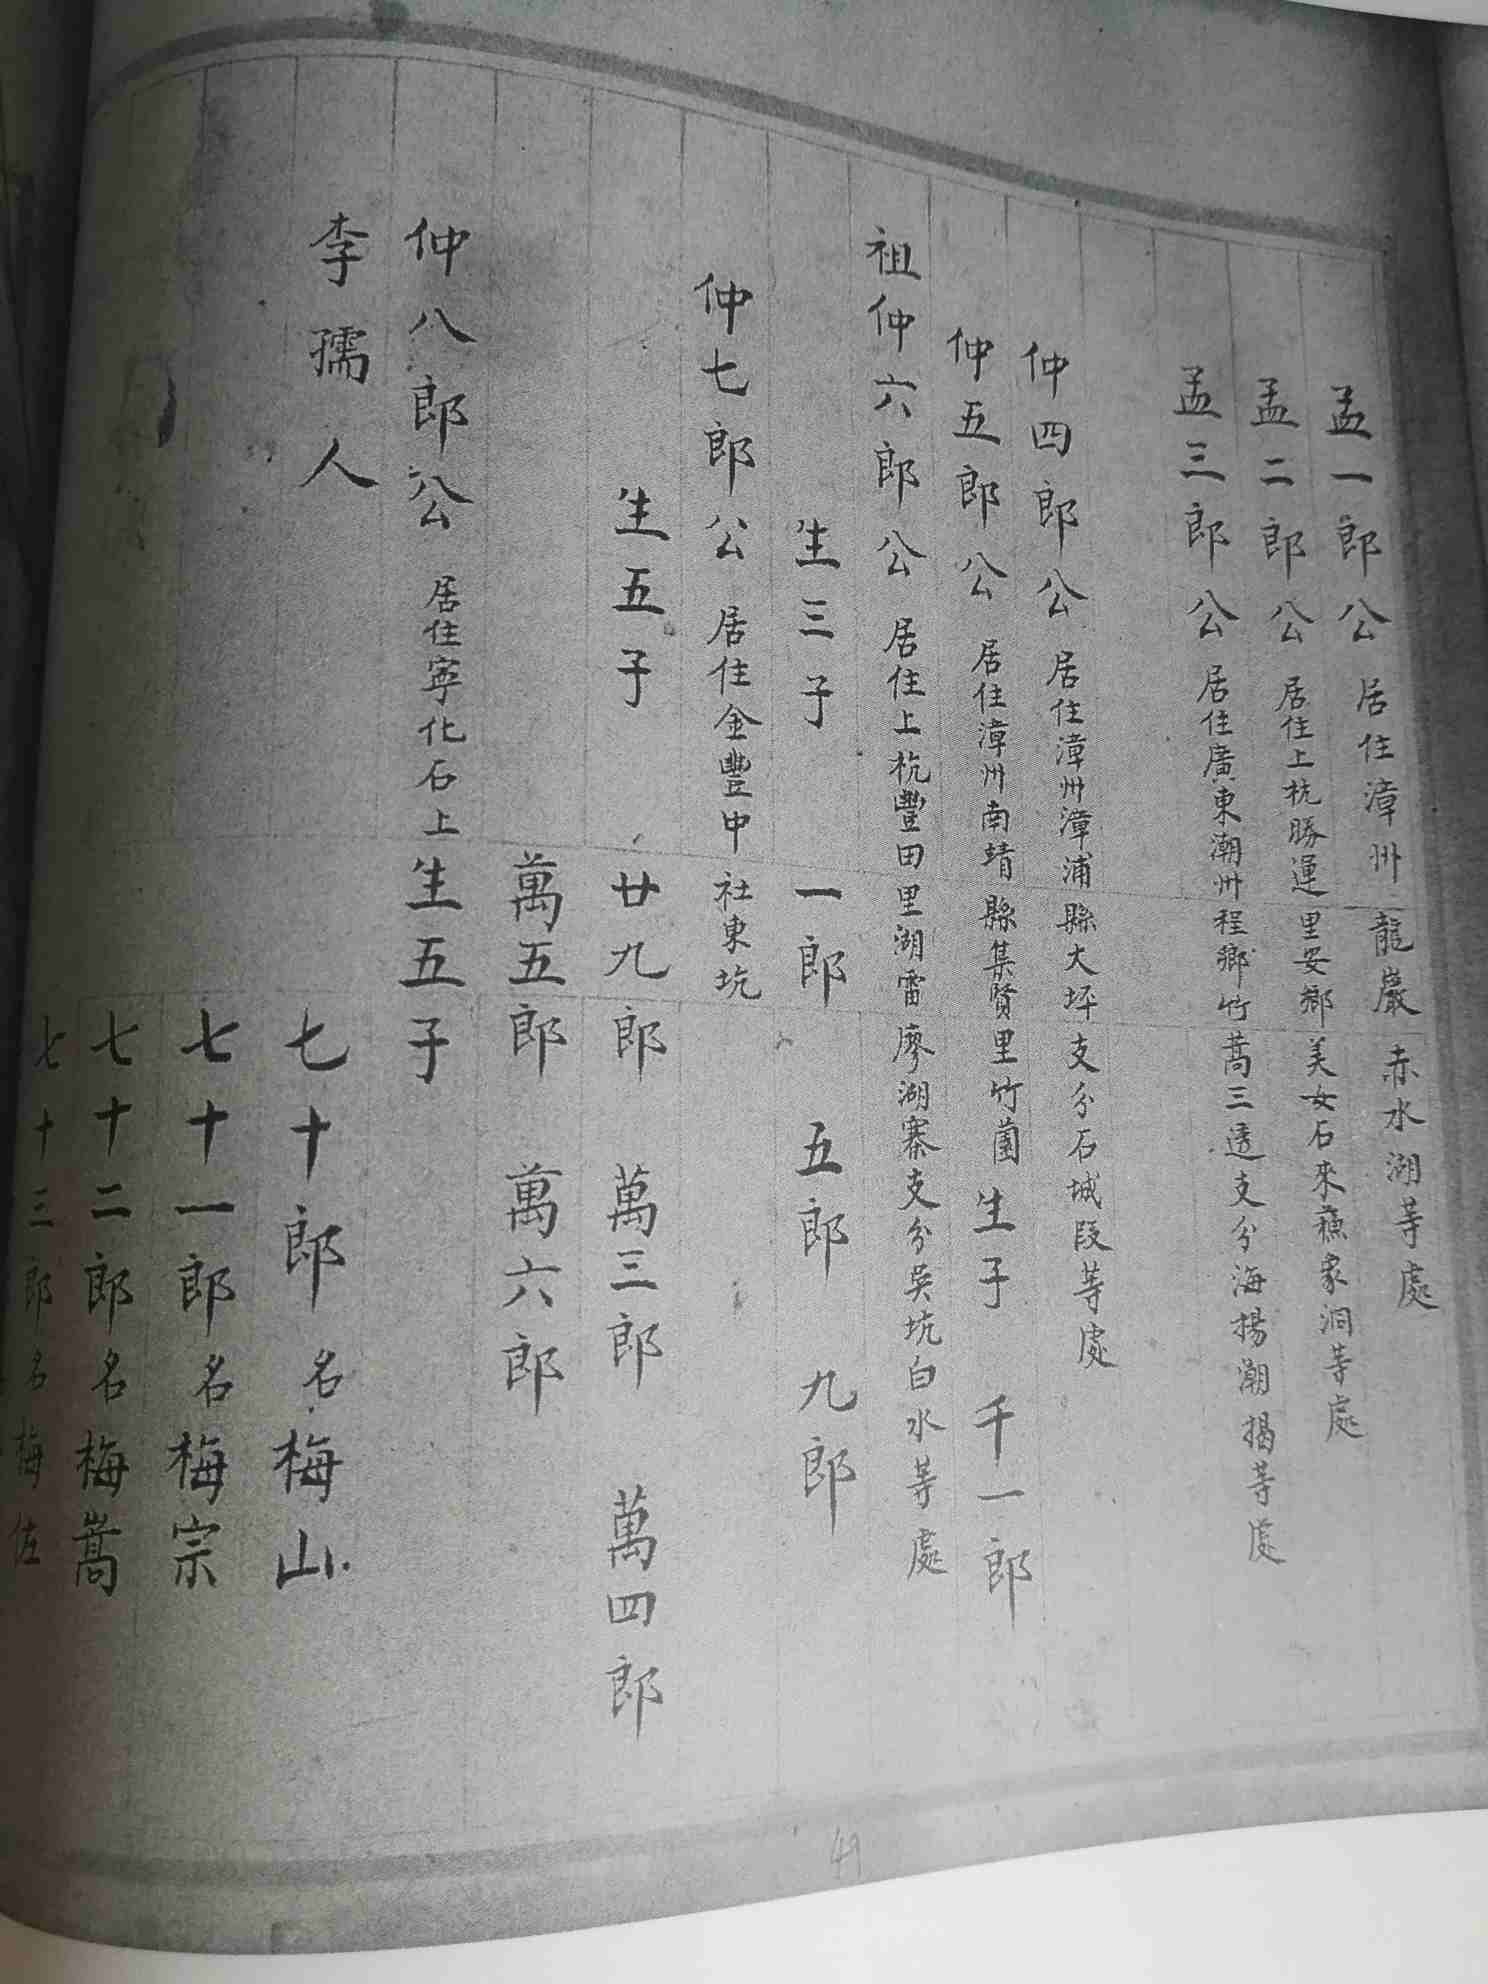 孟一郎公 居住漳州龍巖赤水湖等處
孟二郎公 居住上杭勝運里安鄉美女石來蘇家洞等處
孟三郎公 居住廣東潮州程鄉竹蒿三透支分海揚潮揭等處
仲四郎公 居住漳州漳浦縣大坪支分石城段等處
仲五郎公 居住漳州南靖縣集賢里竹薗 生子 千一郎
祖仲六郎公 居住上杭豐田里湖雷廖湖寨支分吳坑白水等處
生三子 一郎 五郎 九郎
仲七郎公 居住金豐中社東坑
生五子 廿九郎 萬三郎 萬四郎
萬五郎 萬六郎
仲八郎公 居住寧化石上 生五子
李孺人 七十郎 名梅山
七十一郎 名梅宗
七十二郎 名梅嵩
七十三郎 名梅佐
49